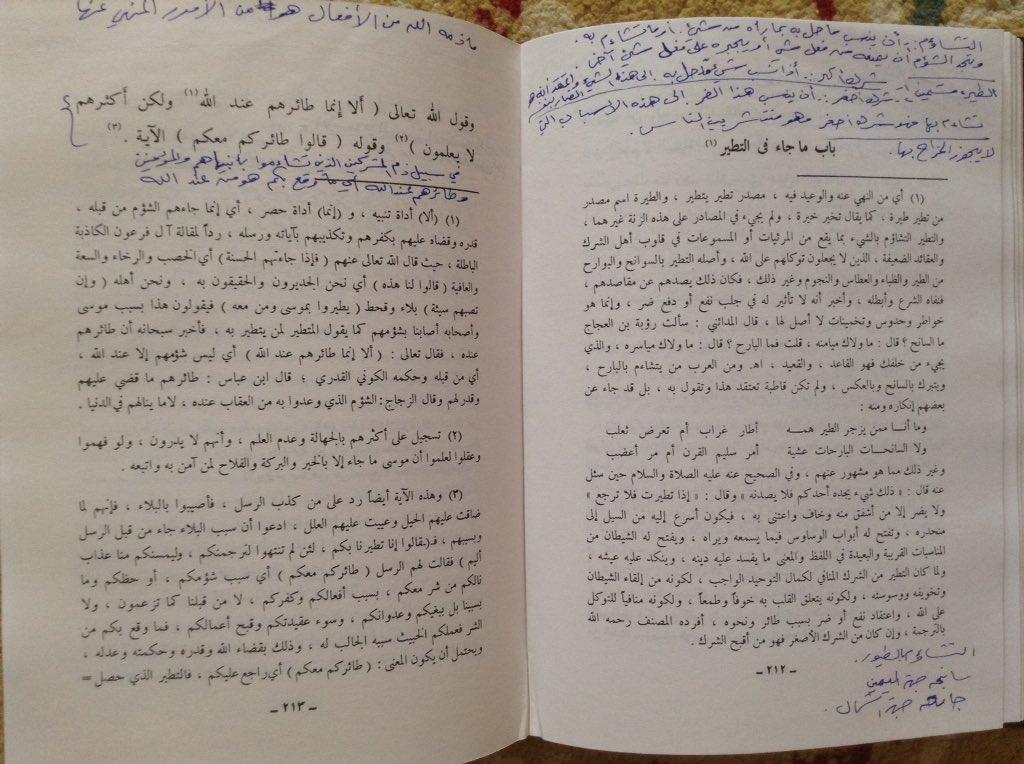 التشاؤم .. أن ينسب ما حل به بما رآه من شيء
شرك أكبر
تشاءم بها فهو شرك أصغر وهو منتشر بين الناس.
لا يجوز المزاح بها.
باب ما جاء فى التطير (١)
(١) أي من النهي عنه والوعيد فيه ، مصدر تطير يتطير ، والطيرة اسم مصدر
من تطير طيرة ، كما يقال تخير خيرة ، ولم يجيء في المصادر على هذه الزنة غيرهما ،
والتطير التشاؤم بالشيء بما يقع من المرئيات أو المسموعات في قلوب أهل الشرك
والعقائد الضعيفة ، الذين لا يجعلون توكلهم على الله ، وأصله التطير بالسوانح والبوارح
من الطير والظباء والعطاس والنجوم وغير ذلك ، فكان ذلك يصدهم عن مقاصدهم ،
فنفاه الشرع وأبطله ، وأخبر أنه لا تأثير له في جلب نفع أو دفع ضر ، وإنما هو
خواطر وحدوس وتخمينات لا أصل لها ، قال المدائني : سألت رؤبة بن العجاج
ما السانح ؟ قال : ما ولاك ميامنه ، قلت فما البارح ؟ قال : ما ولاك مياسره ، والذي
يجيء من خلفك فهو القاعد ، والقعيد ، اهـ. ومن العرب من يتشاءم بالبارح ،
ويتبرك بالسانح وبالعكس ، ولم تكن قاطبة تعتقد هذا وتقول به ، بل قد جاء عن
بعضهم إنكاره ومنه :
وما أنــا ممن يزجر الطير همــه أطار غراب أم تعرض ثعلب
ولا السانحــات البارحات عشية أمر سليم القرن أم مر أعضب
وغير ذلك مما هو مشهور عنهم ، وفي الصحيح عنه عليه الصلاة والسلام حين سئل
عنه قال : « ذلك شيء يجده أحدكم فلا يصدنه » وقال : « إذا تطيرت فلا ترجع »
ولا يضر إلا من أشفق منه وخاف واعتنى به ، فيكون أسرع إليه من السيل إلى
منحدره ، وتفتح له أبواب الوساوس فيما يسمعه ويراه ، ويفتح له الشيطان من
المناسبات القريبة والبعيدة في اللفظ والمعنى ما يفسد عليه دينه ، وينكد عليه عيشه ،
ولما كان التطير من الشرك المنافي لكمال التوحيد الواجب ، لكونه من إلقاء الشيطان
وتخويفه ووسوسته ، ولكونه يتعلق القلب به خوفاً وطمعاً ، ولكونه منافياً للتوكل
على الله ، واعتقاد نفع أو ضر بسبب طائر ونحوه ، أفرده المصنف رحمه الله
بالترجمة ، وإن كان من الشرك الأصغر فهو من أقبح الشرك.
التشاءم بالطيور.
سانحه جهة اليمين
جهة الشمال.
ـ ٢١٢ ـ
ما ذمه الله من الأفعال هو من الأمور المنهي عنها
وقول الله تعالى ( ألا إنما طائرهم عند الله (١) ولكن أكثرهم
لا يعلمون ) (٢) وقوله ( قالوا طائركم معكم ) الآية . (٣)
في سبيل ذم المشركين الذين تشاءموا بأنبيائهم
وطائرهم عند الله أي ما وقع بكم هو من عند الله
(١) (ألا) أداة تنبيه ، و (إنما) أداة حصر ، أي إنما جاءهم الشؤم من قبله ،
قدره وقضاه عليهم بكفرهم وتكذيبهم بآياته ورسله ، رداً لمقالة آل فرعون الكاذبة
الباطلة ، حيث قال الله تعالى عنهم ( فإذا جاءتهم الحسنة ) أي الخصب والرخاء والسعة
والعافية ( قالوا لنا هذه ) أي نحن الجديرون والحقيقون به ، ونحن أهله ( وإن
تصبهم سيئة ) بلاء وقحط ( يطيروا بموسى ومن معه ) فيقولون هذا بسبب موسى
وأصحابه أصابنا بشؤمهم كما يقول المتطير لمن يتطير به ، فأخبر سبحانه أن طائرهم
عنده ، فقال تعالى : ( ألا إنما طائرهم عند الله ) أي ليس شؤمهم إلا عند الله ،
أي من قبله وحكمه الكوني القدري ؛ قال ابن عباس : طائرهم ما قضي عليهم
وقدر لهم وقال الزجاج : الشؤم الذي وعدوا به من العقاب عنده ، لا ما ينالهم في الدنيا .
(٢) تسجيل على أكثرهم بالجهالة وعدم العلم ، وأنهم لا يدرون ، ولو فهموا
وعقلوا لعلموا أن موسى ما جاء إلا بالخير والبركة والفلاح لمن آمن به واتبعه .
(٣) وهذه الآية أيضاً رد على من كذب الرسل ، فأصيبوا بالبلاء ، فإنهم لما
ضاقت عليهم الحيل وعييت عليهم العلل ، ادعوا أن سبب البلاء جاء من قبل الرسل
وبسببهم ، فـ(قالوا إنا تطيرنا بكم ، لئن لم تنتهوا لنرجمنكم ، وليمسنكم منا عذاب
أليم ) فقالت لهم الرسل ( طائركم معكم ) أي سبب شؤمكم ، أو حظكم وما
نالكم من شر معكم ، بسبب أفعالكم وكفركم ، لا من قبلنا كما تزعمون ، ولا
بسببنا بل ببغيكم وعدوانكم ، وسوء عقيدتكم وقبح أعمالكم ، فما وقع بكم من
الشر فعملكم الخبيث سببه الجالب له ، وذلك بقضاء الله وقدره وحكمته وعدله ،
ويحتمل أن يكون المعنى : ( طائركم معكم ) أي راجع عليكم ، فالتطير الذي حصل =
ـ ٢١٣ ـ